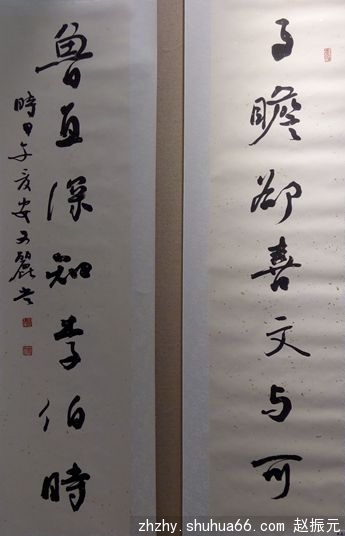 子瞻却喜文与可
鲁直深知李伯時
時甲午
zhzhy.shuhua66.com 赵振元